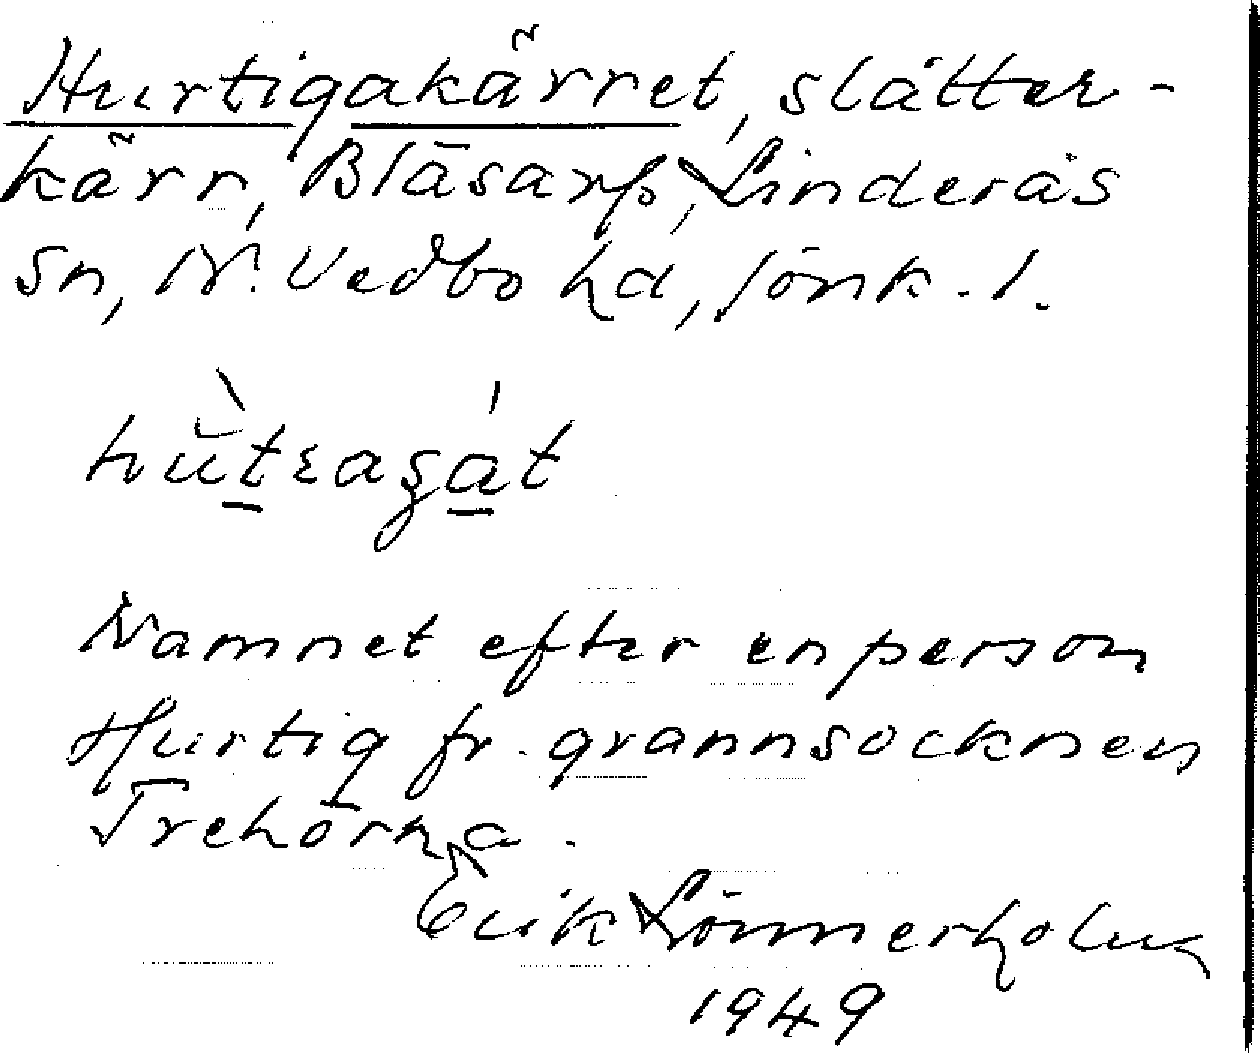 Hurtigakärret, slåtter-
kärr, Blåsarp, Linderås
sn, N. Vedbo hd, Jönk. l.
Namnet efter en person
Hurtig fr. grannsocknen
Trehörna.
Erik Lönnerholm
1949